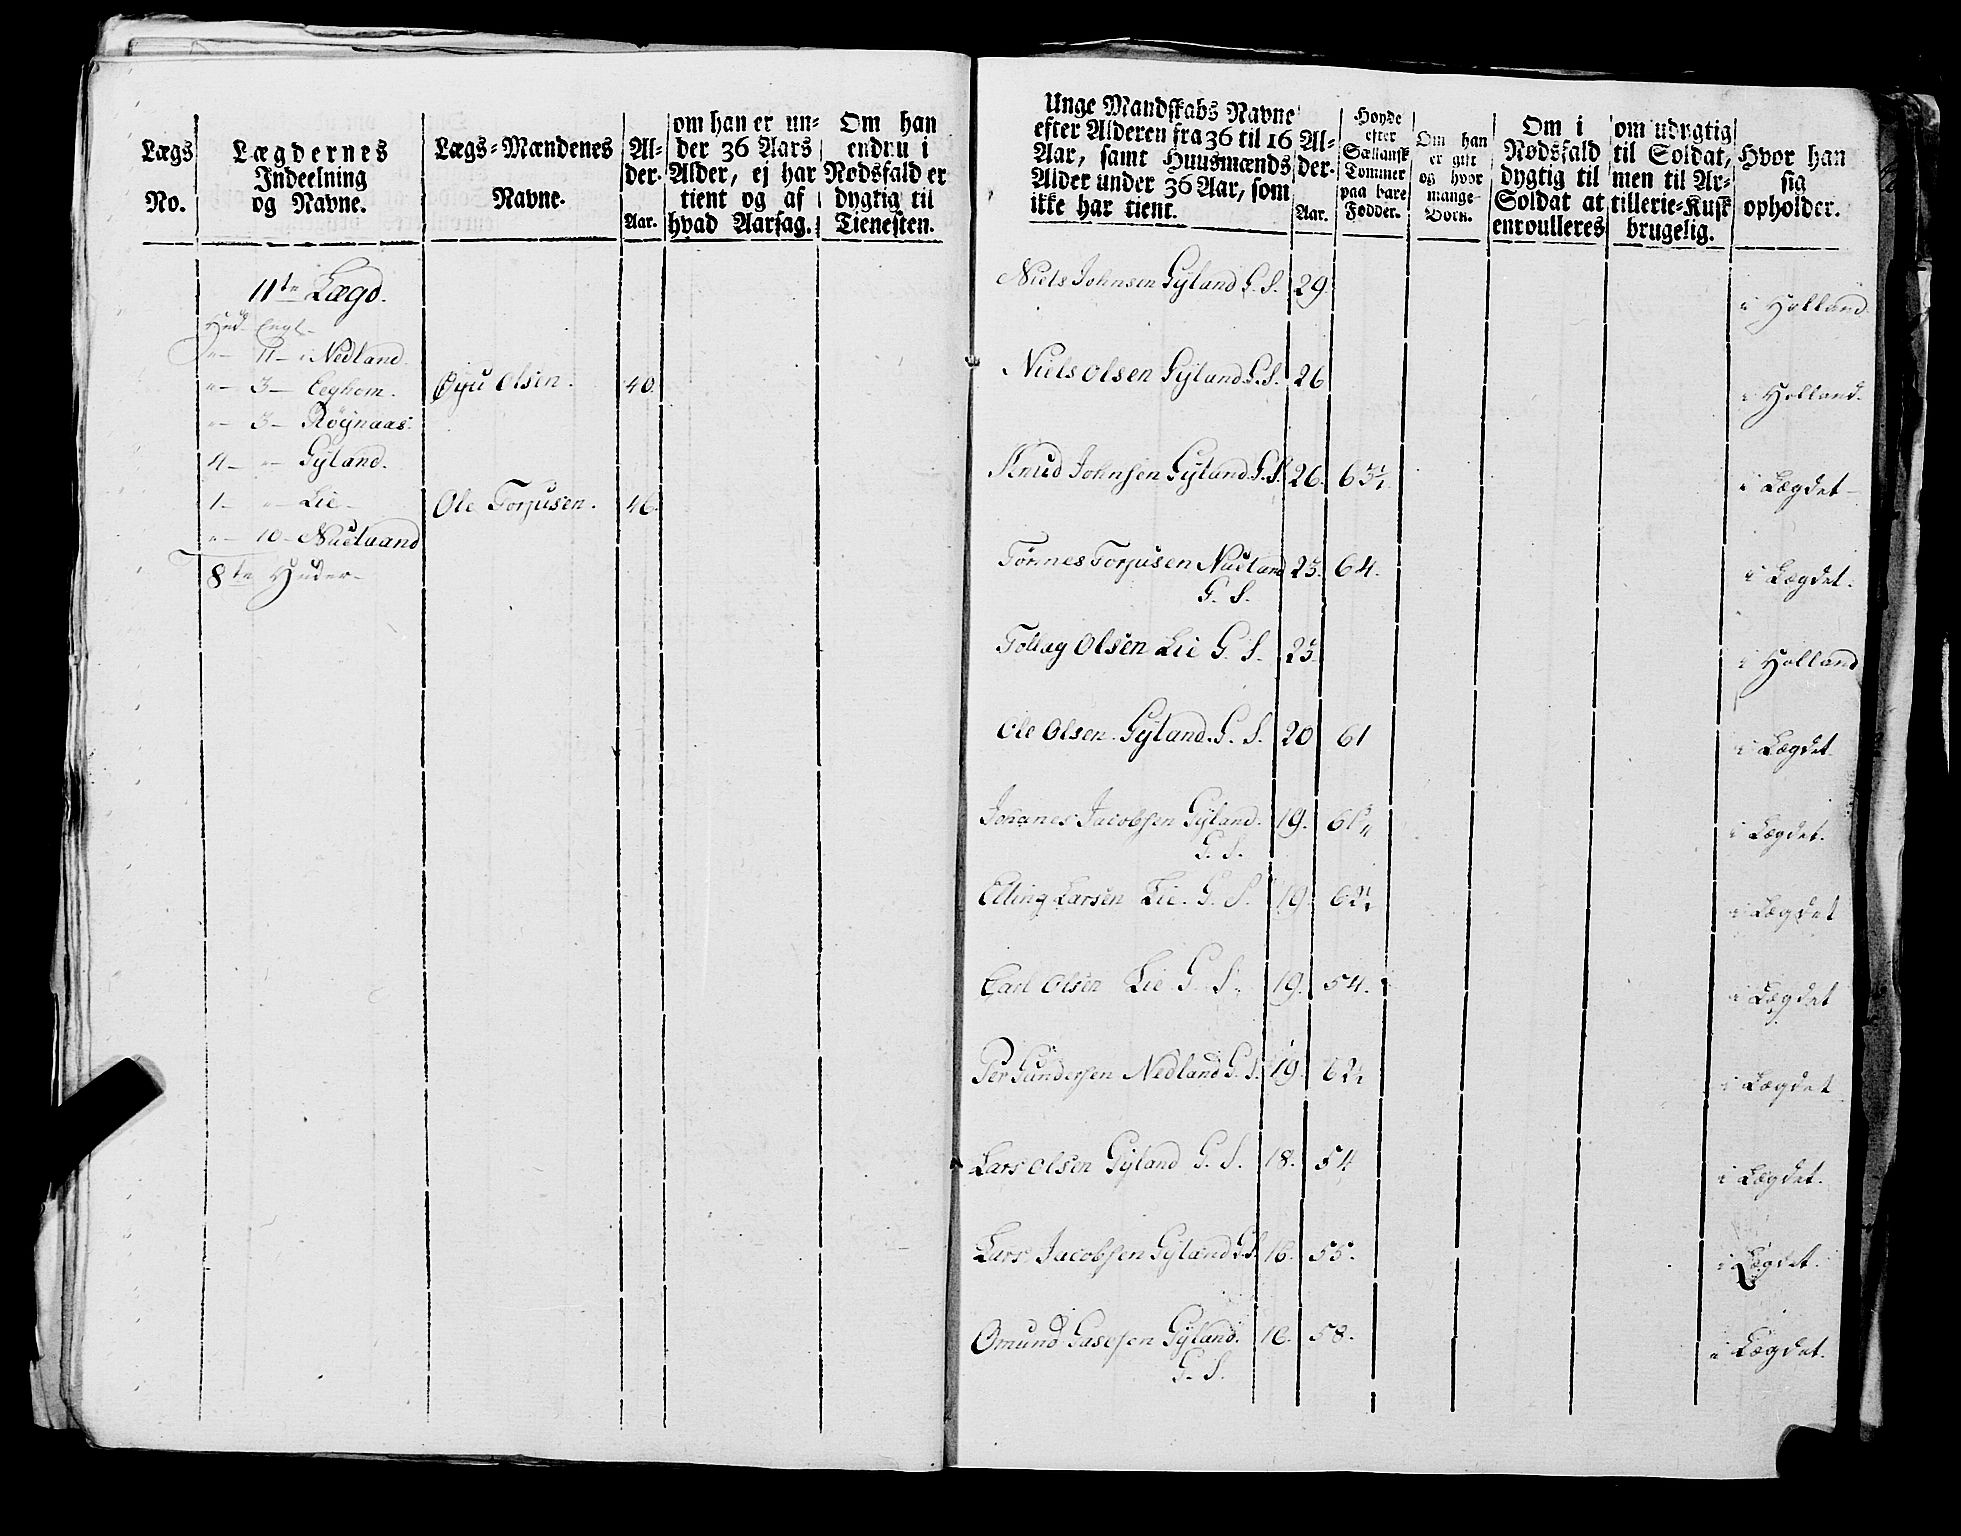 Lægs No.
Lægdernes Indeelning og Navne.
Lægs-Mændenes Navne.
Al-der. Aar.
om han er un-der 36 Aars Alder, ej har tient og af hvad Aarsag.
Om han endnu i Nødsfald er dygtig til Tienesten.
11te Lægd.
Hud. Engl.
"– 11– i Nedland.
"– 3– Eeghem. Øyu Olsen. 40.
"– 3– Röynaas.
4– "– Gyland.
1– "– Lie– Ole Torjusen. 46.
"– 10– Nueland
8te Huder–
Unge Mandskabs Navne efter Alderen fra 36 til 16 Aar, samt Huusmænds Alder under 36 Aar, som ikke har tient.
Al-der. Aar.
Høyde efter Sællansk Tommer paa bare Fødder.
Om han er gift og hvor mange Børn.
Om i Nødsfald dygtig til Soldat at enroulleres
om udygtig til Soldat, men til Ar-tillerie-Kusk brugelig.
Hvor han sig opholder.
Niels Johnsen Gyland G. S. 29. i Holland.
Niels Olsen Gyland G. S. 26 i Holland.
Knud Johnsen Gyland G. S. 26. 63½. i Lægdet–
Tönnes Torjusen Nueland 23. 64. i Lægdet.
G. S.
Tollag Olsen Lie G. S. 23. i Holland
Ole Olsen Gyland. G. S. 20 61 i Lægdet.
Johanes Jacobsen Gyland. 19. 61¾ i Lægdet.
G. S.
Elling Larsen Lie. G. S. 19. 62¼ i Lægdet
Carl Olsen Lie G. S. 19. 54. i Lægdet
Per Gundersen Nedland G. S. 19. 62½ i Lægdet
Lars Olsen Gyland G. S. 18. 54 i Lægdet.
Lars Jacobsen Gyland G. S. 16. 55. i Lægdet.
Omund Gasesen Gyland. 16. 58. i Lægdet.
G. S.